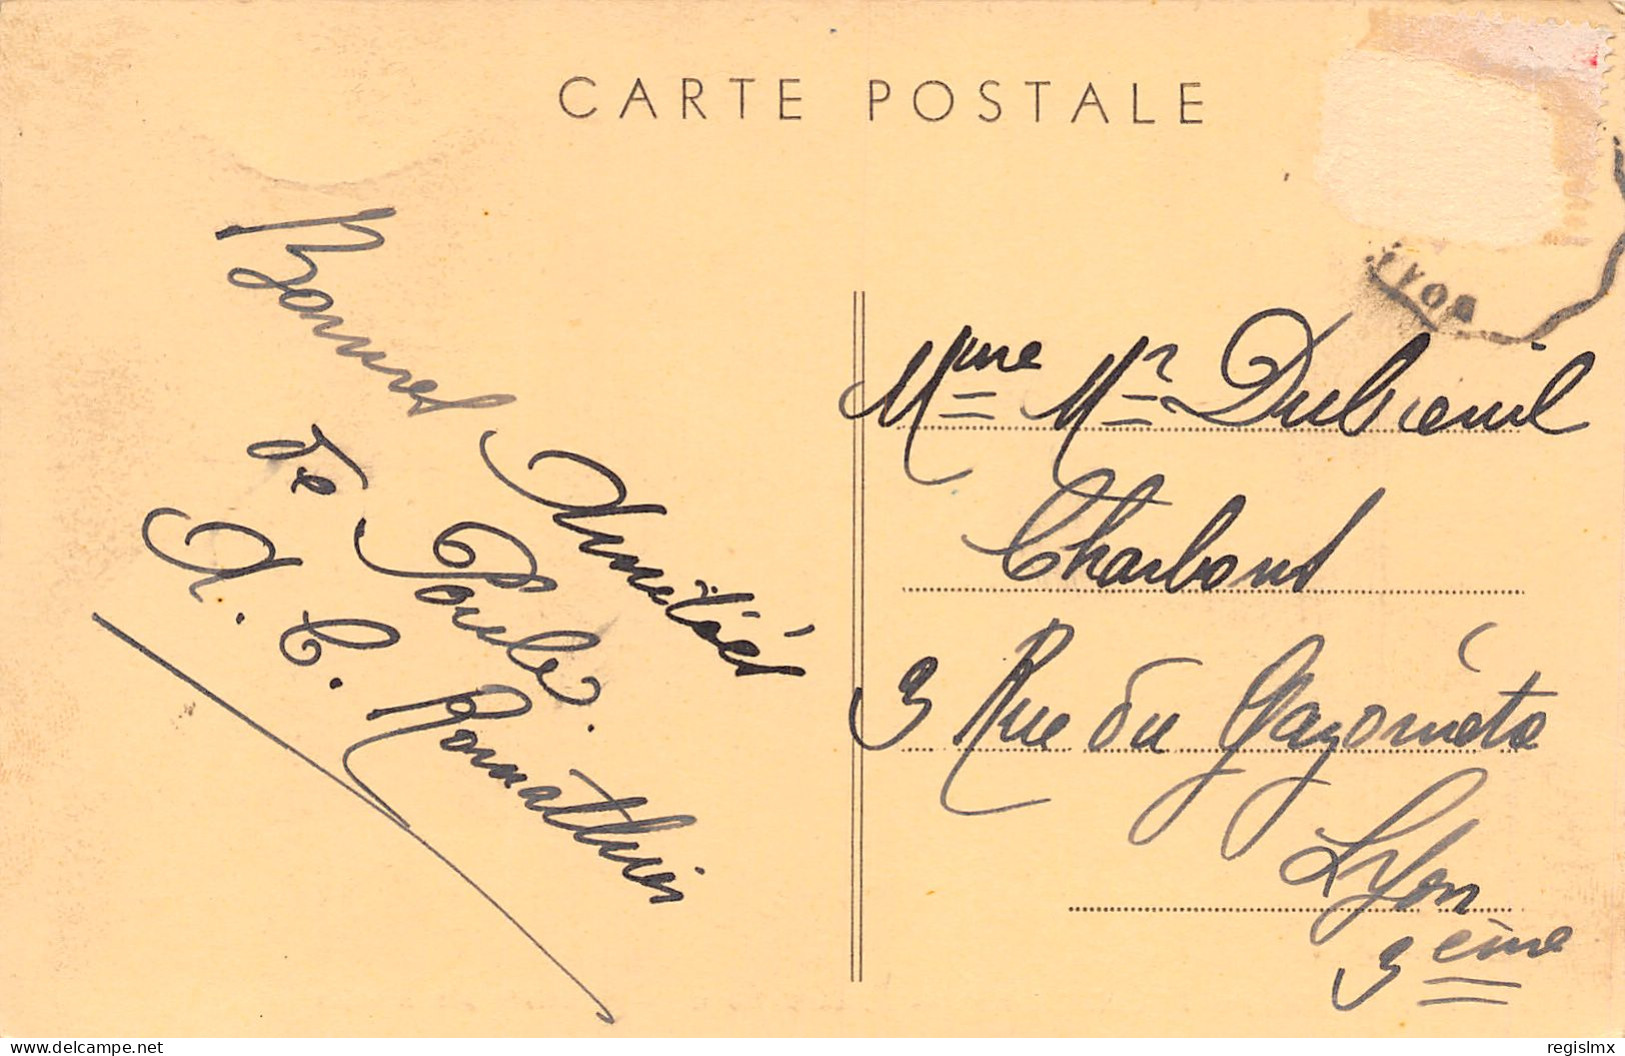 CARTE POSTALE
Bonnes Amitiés
de Paule.
A. C. Romathier
LYON
Mme Mr Dubreuil
Charbons
3 Rue du Gazomètre
Lyon
3ème
delcampe.net
regislmx